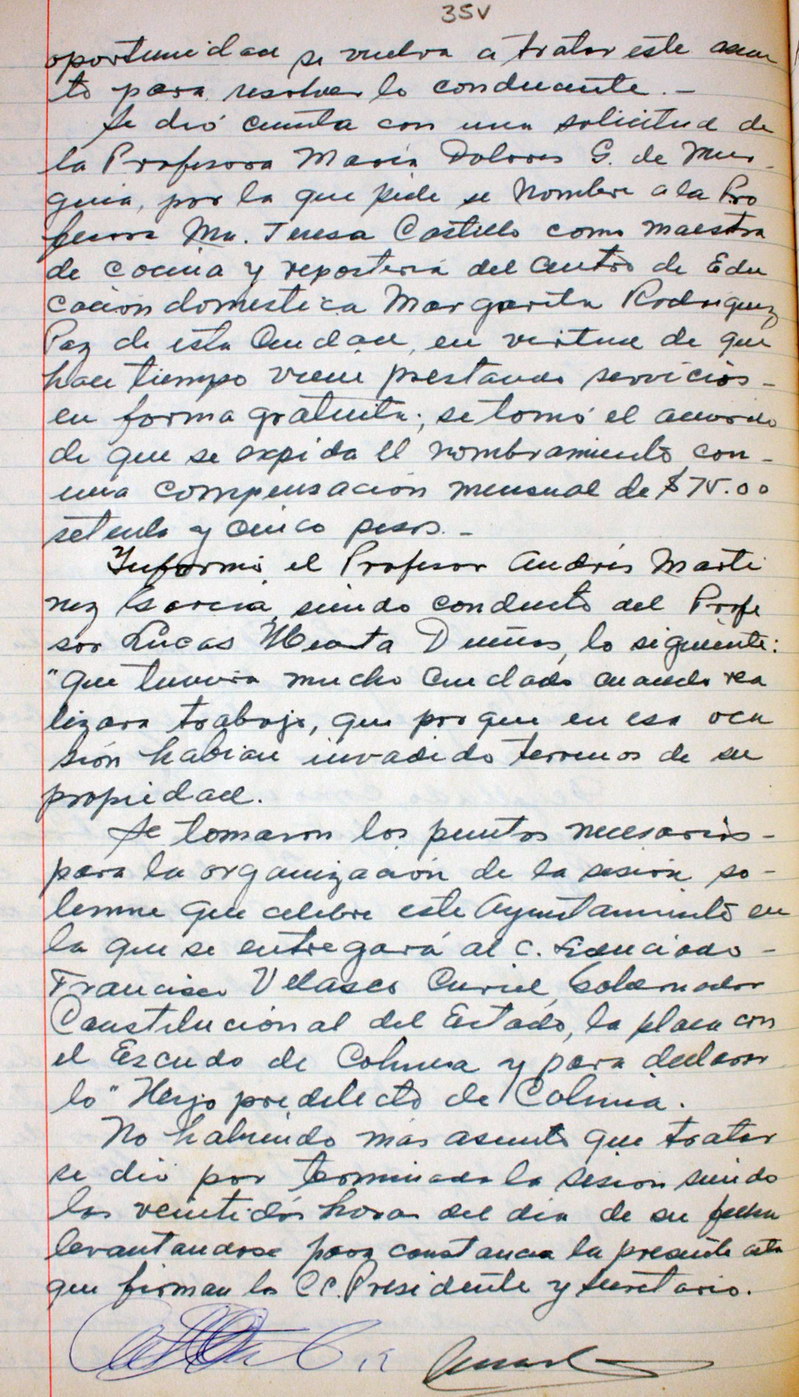 35v
oportunidad se vuelva a tratar este asun
to para resolver lo conducente. -
Se dió cuenta con una solicitud de
la Profesora María Dolores G. de Mun-
guia, por la que pide se nombre a la Pro
fesora Ma. Teresa Castillo como maestra
de cocina y reposteria del Centro de Edu
cación domestica Margarita Rodriguez
Paz de esta Ciudad, en virtud de que
hace tiempo viene prestando servicios -
en forma gratuita; se tomó el acuerdo
de que se expida el nombramiento con -
una compensación mensual de $75.00
setenta y cinco pesos. -
Informó el Profesor Andrés Marti
nez García, siendo conducto del Profe
sor Lucas Huerta Dueñas, lo siguiente:
"que tuviera mucho cuidado cuando rea
lizara trabajo, que porque en esa oca
sión habian invadido terrenos de su
propiedad.
Se tomaron los puntos necesarios -
para la organización de la sesión so-
lemne que celebre este Ayuntamiento en
la que se entregará al C. Licenciado -
Francisco Velasco Curiel, Gobernador
Constitucional del Estado, la placa con
el Escudo de Colima y para declarar
lo "Hijo predilecto de Colima.
No habiendo más asunto que tratar
se dió por terminada la sesion siendo
las veintidós horas del dia de su fecha
levantandose para constancia la presente acta
que firman los CC. Presidente y Secretario.